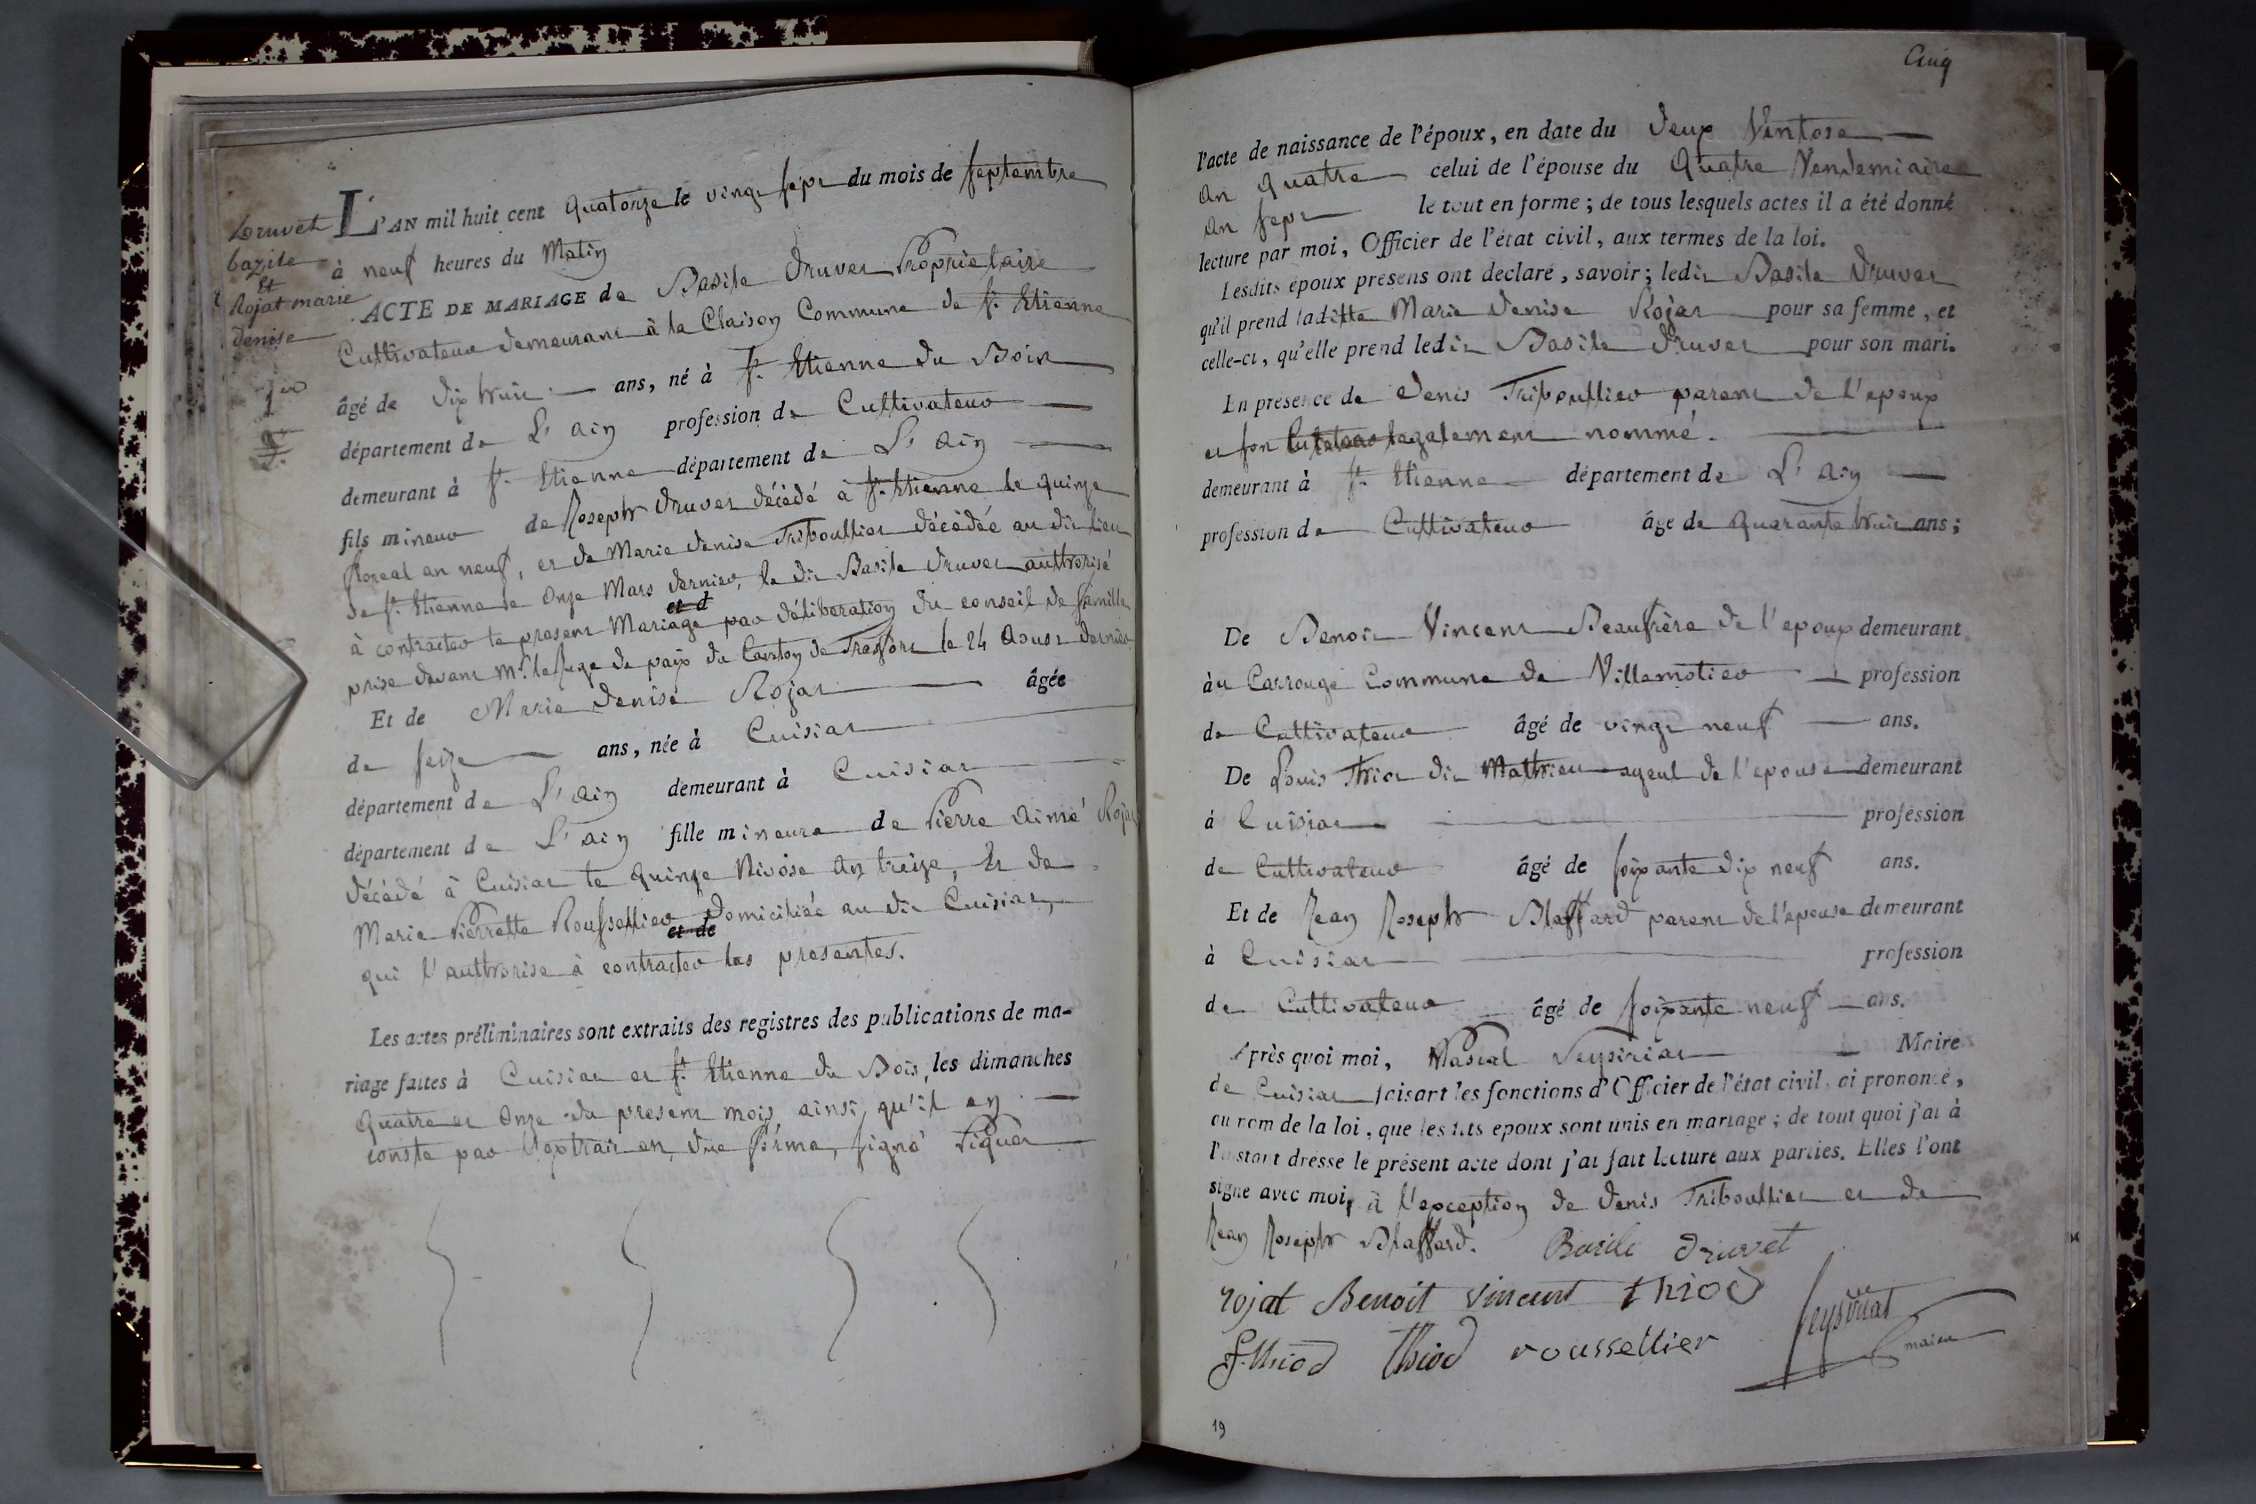 Druvet
bazile
Et
Rojat marie
denise
L'AN mil huit cent Quatorze le vingt sept du mois de septembre
à neuf heures du Matin
ACTE DE MARIAGE de Basile Druvet Propriétaire
Cultivateur demeurant à la Claison Commune de St. Etienne
âgé de dix huit ans, né à St. Etienne du Bois
département de L'Ain profession de Cultivateur
demeurant à St. Etienne département de L'Ain
fils mineur de Joseph Druvet décédé à St. Etienne le quinze
floreal an neuf, et de Marie Denise Triboullier décédée au dit lieu
de St. Etienne le Onze Mars dernier, le dit Basile Druvet authorisé
à contracter le present Mariage par déliberation du conseil de famille
prise devant Mr. le Juge de paix du Canton de Treffort le 24 Aoust dernier
Et de Marie denise Rojat âgée
de seize ans, née à Cuisiat
département de L'Ain demeurant à Cuisiat
département de L'ain fille mineure de Pierre Aimé Rojat
décédé à Cuisiat le quinze Nivôse An treize, Et de
Marie Pierrette Roussellier domiciliée au dit Cuisiat,
et de
qui l'authorise à contracter les presentes.
Les actes préliminaires sont extraits des registres des publications de ma-
riage faites à Cuisiat et St. Etienne du Bois, les dimanches
Quatre et Onze du present mois, ainsi qu'il en
conste par l'extrait en due forme, signé Piquet
Cinq
l'acte de naissance de l'époux, en date du deux Ventose
an Quatre celui de l'épouse du Quatre Vendemiaire
an sept le tout en forme ; de tous lesquels actes il a été donné
lecture par moi, Officier de l'état civil, aux termes de la loi.
Lesdits époux présens ont déclaré, savoir ; ledit Basile Druvet
qu'il prend laditte Marie Denise Rojat pour sa femme, et
celle-ci, qu'elle prend ledit Basile Druvet pour son mari.
En présence de Denis Triboullier parent de l'epoux
et son legalement nommé.
demeurant à St. Etienne département de L'Ain
profession de Cultivateur âge de Quarante huit ans ;
De Benoit Vincent Beaufrère de l'epoux demeurant
au Carrouge Commune de Villemotier profession
de Cultivateur âgé de vingt neuf ans.
De Louis Thiod dit Mathieu ayeul de l'epouse demeurant
à Cuisiat profession
de Cultivateur âgé de soixante dix neuf ans.
Et de Jean Joseph Blaffard parent de l'epouse demeurant
à Cuisiat profession
de Cultivateur âgé de soixante neuf ans.
Après quoi moi, Pascal Maire
de Cuisiat faisant les fonctions d'Officier de l'état civil, ai prononcé,
au nom de la loi, que lesdits époux sont unis en mariage ; de tout quoi j'ai à
l'instant dressé le présent acte dont j'ai fait lecture aux parties. Elles l'ont
signé avec moi, à l'exception de Denis Triboullier et de
Jean Joseph Blaffard. Basile Druvet
rojat Benoit Vincent thiod
f. thiod thiod roussellier
maire
19